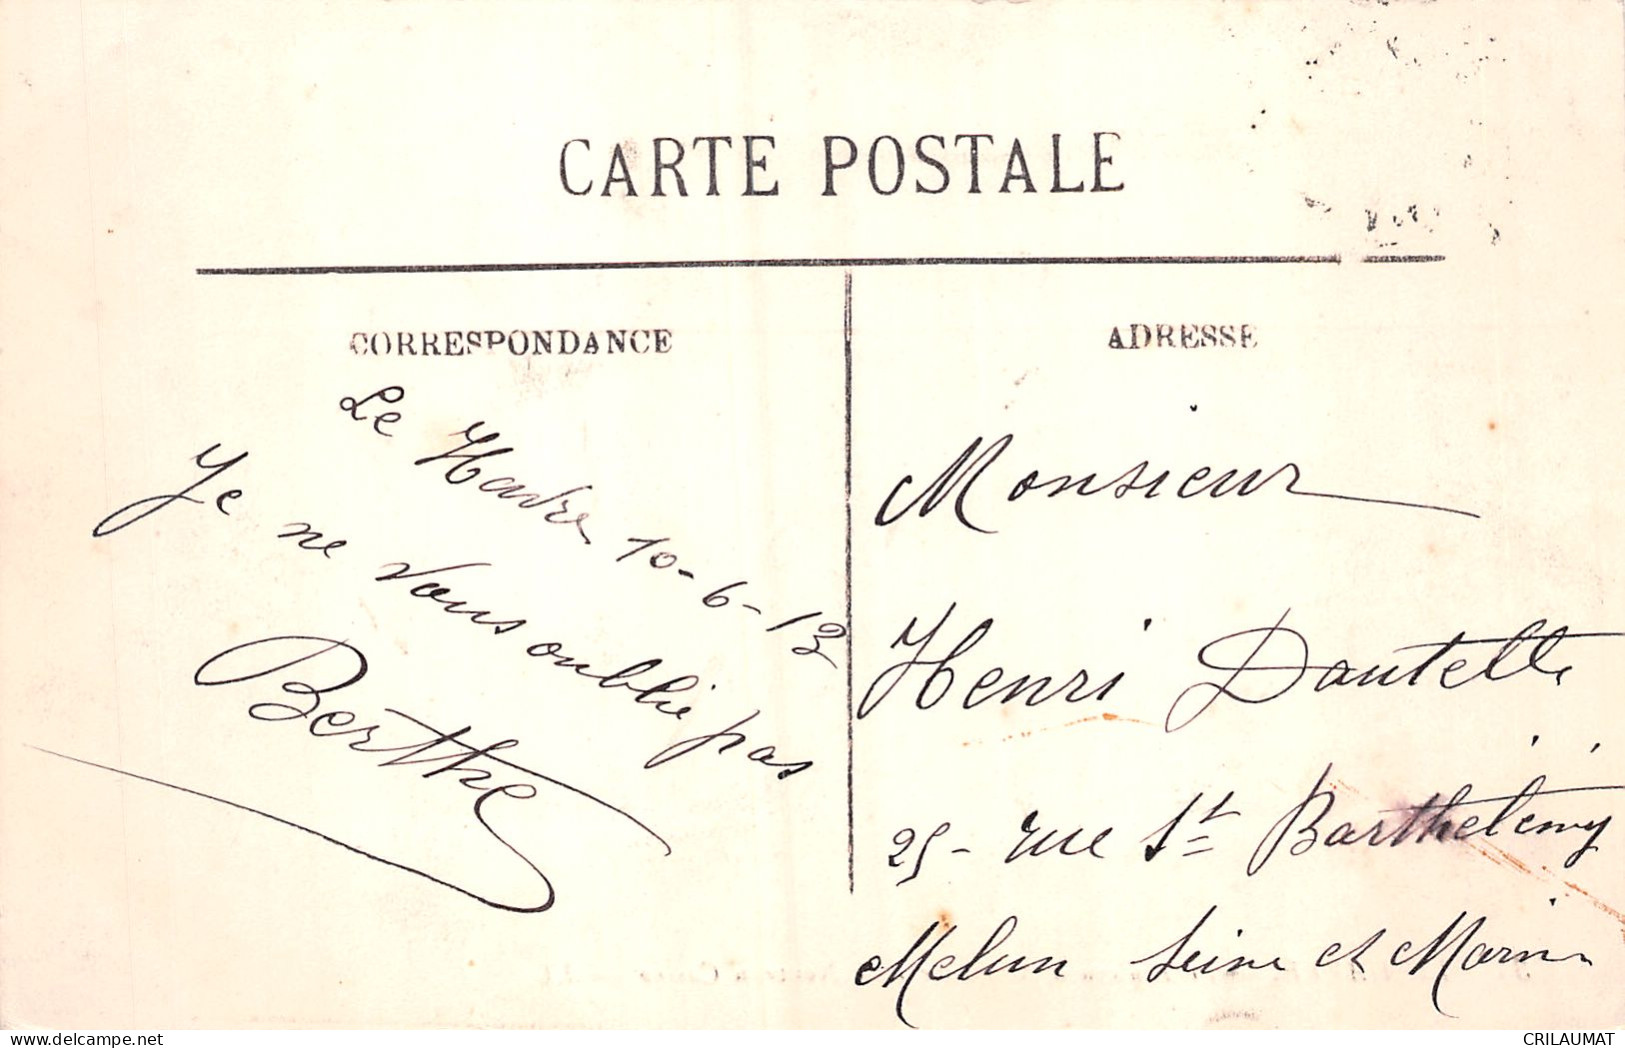 CARTE POSTALE
CORRESPONDANCE
Le Havre 10-6-13
Je ne vous oublie pas
Berthe
ADRESSE
Monsieur
Henri Dautelle
25 - rue St Barthélémy
Melun Seine et Marne
CRILAUMAT